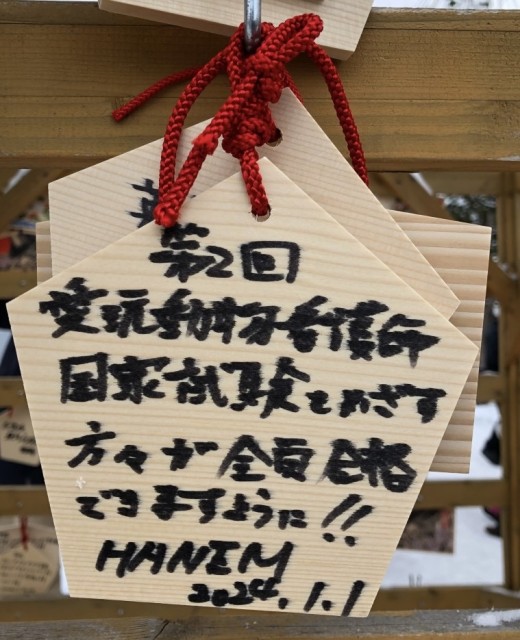 第2回
愛玩動物看護師
国家試験をめざす
方々が全員合格
できますように!!
HANEM
2024.1.1